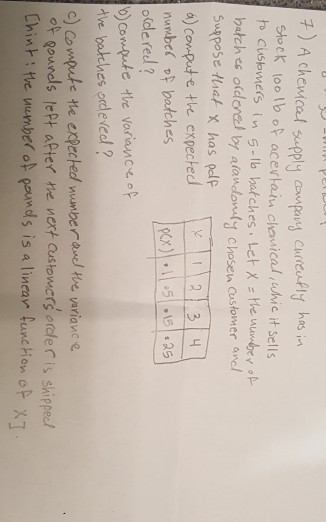 7) A chemical supply company currently has in
stock 100 lb of acertain chemical, whic it sells
to customers in 5-lb batches. Let X = the number of
batches ordered by arandomly chosen customer and
suppose that X has pdf
x 1 2 3 4
P(X) .1 .5 .15 .25
a) compute the expected
number of batches
ordered?
b) compute the variance of
the batches ordered?
c) compute the expected number and the variance
of pounds left after the next customers order is shipped
[hint: the number of pounds is a linear function of X].